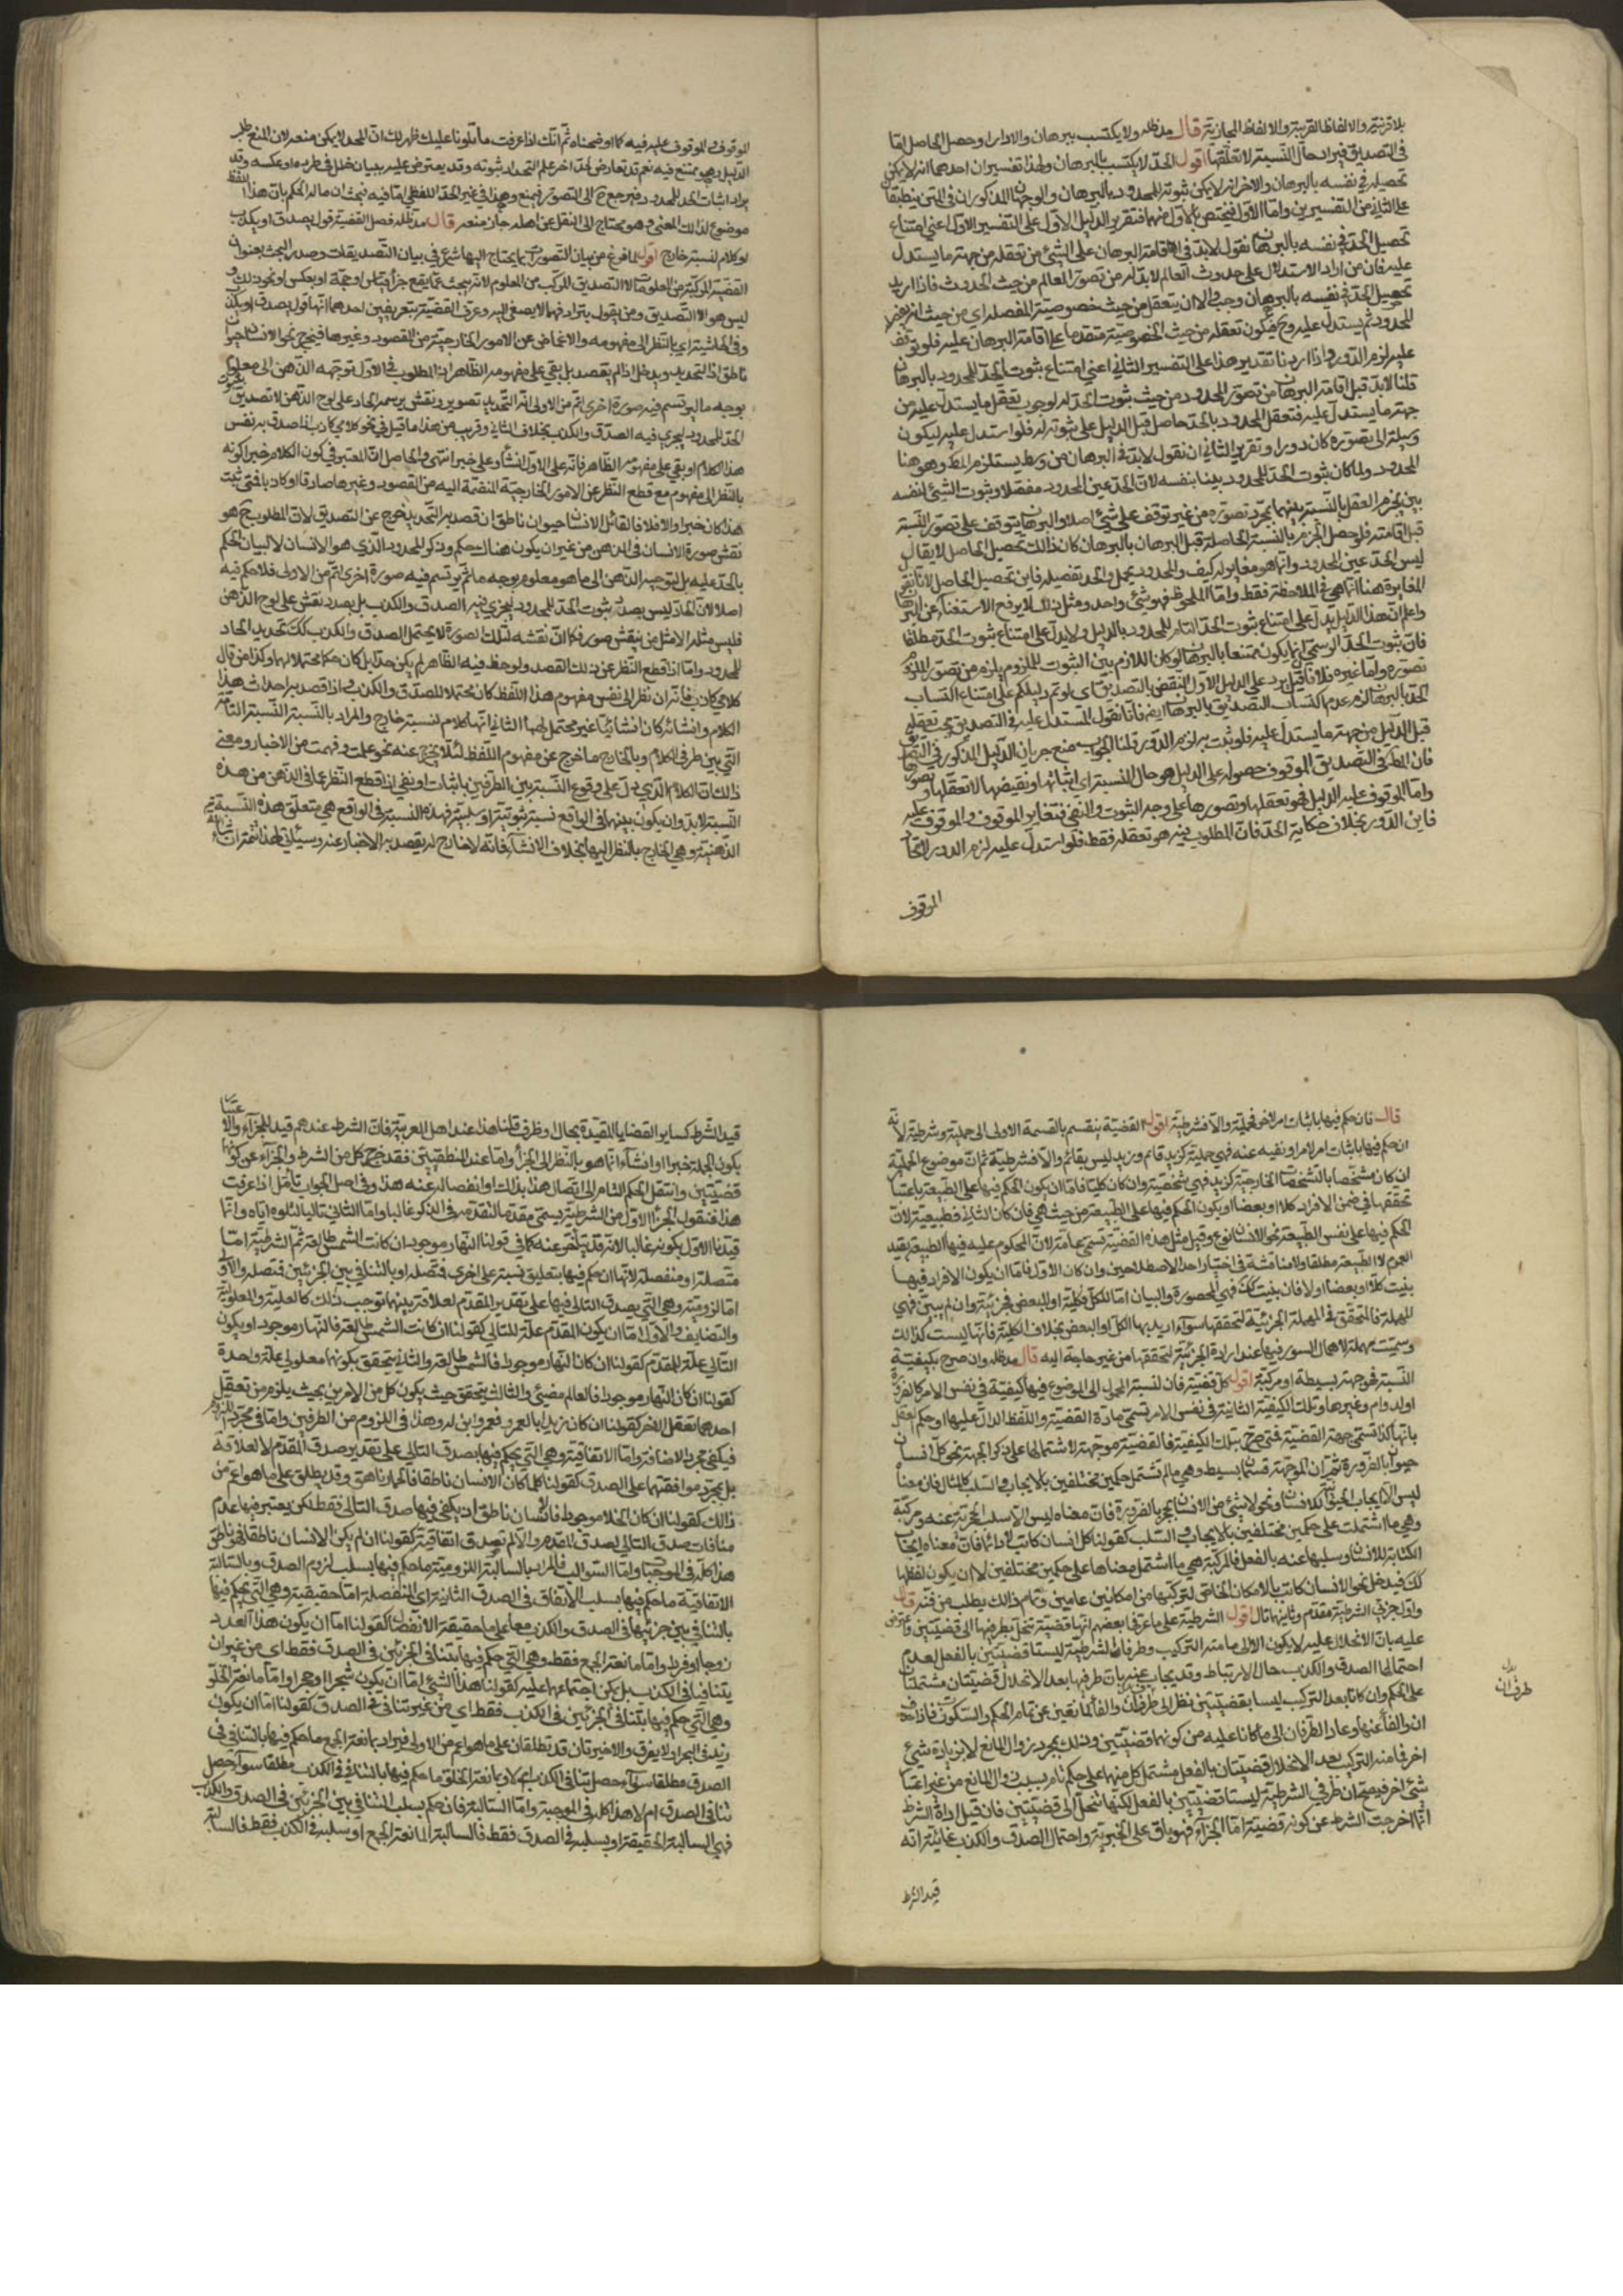 بلا قرينة والالفاظ الغريبة والالفاظ المجازية قال مدظله ولا يكتسب ببرهان والا دار او حصل الحاصل اما
في التصديق فيراد حال النسبة لا تعلقها اقول الحد لا يكتسب بالبرهان ولهذا تفسيران احدهما انه لا يمكن
تحصيله في نفسه بالبرهان والاخر انه لا يمكن ثبوته للمحدود بالبرهان والوجهان المذكوران في المتن ينطبقان
على الثاني من التفسيرين واما الاول فيختص بالاول منهما فتقرير الدليل الاول على التفسير الاول اعني امتناع
تحصيل الحد في نفسه بالبرهان نقول لا بد في اقامة البرهان على الشئ من تعقله من جهة ما يستدل
عليه فان من اراد الاستدلال على حدوث العالم لا بد له من تصور العالم من حيث الحدوث فاذا اريد
تحصيل الحد في نفسه بالبرهان وجب اولا ان يتعقل من حيث خصوصيته المفصلة اي من حيث انه
المحدود ثم يستدل عليه وح فيكون تعقله من حيث الخصوصية متقدما على اقامة البرهان عليه فلو توقف
عليه لزم الدور واذا اردنا تقدير هذا على التفسير الثاني اعني امتناع ثبوت الحد للمحدود بالبرهان
قلنا لا بد قبل اقامة البرهان من تصور المحدود من حيث ثبوت الحد له لوجوب تعقل ما يستدل عليه من
جهة ما يستدل عليه فتعقل المحدود بالحد حاصل قبل الدليل على ثبوته له فلو استدل عليه ليكون
وسيلة الى تصوره كان دورا وتقرير الثاني ان نقول لا بد في البرهان من وسط يستلزم المط وهو هنا
المحدود ولما كان ثبوت الحد للمحدود بينا بنفسه لان الحد عين المحدود مفصلا وثبوت الشئ لنفسه
بين يجزم العقل بالنسبة بينهما بمجرد تصوره من غير توقف على شئ اصلا والبرهان يتوقف على تصور النسبة
قبل اقامته فلو حصل الجزم بالنسبة الحاصلة قبل البرهان بالبرهان كان ذالك تحصيل الحاصل لا يقال
ليس الحد عين المحدود وانما هو مغاير له كيف والمحدود مجمل والحد تفصيله فاين تحصيل الحاصل لانا نقول
المغايرة هنا انما هي في الملاحظة فقط واما الملحوظ فهو شئ واحد ومثل ذلك لا يرفع الاستغناء عن البرهان
واعلم ان هذا الدليل يدل على امتناع ثبوت الحد التام للمحدود بالدليل ولا يدل على امتناع ثبوت الحد مطلقا
فان ثبوت الحد الرسمي انما يكون ممتنعا بالبرهان لو كان اللازم بين الثبوت للملزوم يلزم من تصور الملزوم
تصوره واما غيره فلا فان قيل يرد على الدليل الاول النقض بالتصديق اي لو تم دليلكم على امتناع اكتساب
الحد بالبرهان لزم عدم اكتساب التصديق بالبرهان ايضا فانا نقول المستدل عليه في التصديق يجب تعقله
قبل الدليل من جهة ما يستدل عليه فلو ثبت به لزم الدور قلنا الجواب منع جريان الدليل المذكور في التصديق
فان المط في التصديق الموقوف حصوله على الدليل هو حال النسبة اي اثباتها او نفيها لا تعقلها وتصورها
واما الموقوف عليه الدليل فهو تعقلها وتصورها على وجه الثبوت والنفي فتغاير الموقوف والموقوف عليه
فاين الدور بخلاف حكاية الحد فان المطلوب فيه هو تعقله فقط فلو استدل عليه لزم الدور لاتحاد
الموقوف
الموقوف والموقوف عليه فيه كما اوضحناه ثم انك اذا عرفت ما تلونا عليك ظهر لك ان الحد لا يمكن منعه لان المنع طلب
الدليل وهو ممتنع فيه نعم قد تعارض بحد اخر على التحديد ثبوته وقد يعترض عليه ببيان خلل في طرده او عكسه وقد
يراد اثبات الحد للمحدود فيرجع ح الى التصور فيمنع وهذا في غير الحد اللفظي اما فيه فبحث ان مآله الحكم بان هذا اللفظ
موضوع لذالك المعنى وهو محتاج الى النقل عن اهله جاز منعه قال مدظله فصل القضية قول يصدق او يكذب
او كلام لنسبته خارج اقول لما فرغ من بيان التصورات وما يحتاج اليها شرع في بيان التصديقات وصدر البحث بعنوان
القضية المركبة من المعلومات لا التصديق المركب من العلوم لانه يبحث عما يقع جزأ لقياس او حجة او بعكس او نحو ذلك و
ليس هو الا التصديق ومن يقول بترادفهما لا يصغى اليه وعرف القضية بتعريفين احدهما انها قول يصدق او يكذب
وفي الحاشية اي بالنظر الى مفهومه والاغماض عن الامور الخارجية من المقصود وغيرها فيخرج نحو الانسان حيوان
ناطق اذ التحديد ويدخل اذا لم يقصد بل بقي على مفهومه الظاهر اذ المطلوب في الاول توجه الذهن الى معلوم
بوجه ما ليرتسم فيه صورة اخرى اتم من الاولى اذ التحديد تصوير ونقش يرسمه الحاد على لوح الذهن لا تصديق بثبوت
الحد للمحدود ليجري فيه الصدق والكذب بخلاف الثاني وقريب من هذا ما قيل في نحو كلامي كاذب اذا صدق به نفس
هذا الكلام او بقي على مفهومه الظاهر فانه على الاول انشاء وعلى خبر انتهى والحاصل ان المعتبر في كون الكلام خبرا كونه
بالنظر الى مفهومه مع قطع النظر عن الامور الخارجية المنضمة اليه من القصود وغيرها صادقا او كاذبا فمتى ثبت
هذا كان خبرا والا فلا فالقائل الانسان حيوان ناطق ان قصد به التحديد خرج عن التصديق لان المطلوب ح هو
نقش صورة الانسان في الذهن من غير ان يكون هناك حكم وذكر للمحدود الذي هو الانسان لا لبيان الحكم
بالحد عليه بل لتوجيه الذهن الى ما هو معلوم بوجه ما ثم يرتسم فيه صورة اخرى اتم من الاولى فلا حكم فيه
اصلا لان الحاد ليس بصدد ثبوت الحد للمحدود ليجري فيه الصدق والكذب بل بصدد نقش على لوح الذهن
فليس مثله الا مثل من ينقش صورة فكما ان نقشه لتلك الصورة لا يحتمل الصدق والكذب كذلك تحديد الحاد
للمحدود واما اذا قطع النظر عن ذلك القصد ولوحظ فيه الظاهر لم يكن حدا بل كان حكما محتملا لهما وكذا من قال
كلامي كاذب فانه ان نظر الى نفس مفهوم هذا اللفظ كان محتملا للصدق والكذب واذا قصد به احداث هذا
الكلام وانشائه كان انشائيا غير محتمل لهما الثاني انها كلام لنسبته خارج والمراد بالنسبة النسبة التامة
التي بين طرفي الكلام وبالخارج ما خرج عن مفهوم اللفظ لئلا يخرج عنه نحو علمت وفهمت من الاخبار ومعنى
ذالك ان الكلام الذي دل على وقوع النسبة بين الطرفين باثبات او نفي اذا قطع النظر عما في الذهن من هذه
النسبة لا بد وان يكون بينهما في الواقع نسبة ثبوتية او سلبية فهذه النسبة في الواقع هي متعلق هذه النسبة
الذهنية وهي الخارج بالنظر اليها بخلاف الانشاء فانه لا خارج له يقصد به الاخبار عنه وسيأتي لهذا
قال فان حكم فيها باثبات امر لاخر فحملية والا فشرطية اقول القضية ينقسم بالقسمة الاولى الى حملية وشرطية لانه
ان حكم فيها باثبات امر لامر او نفيه عنه فهي حملية كزيد قائم وزيد ليس بقائم والا فشرطية ثم ان موضوع الحملية
ان كان مشخصا بالتشخصات الخارجية كزيد فهي شخصية وان كان كليا فاما ان يكون الحكم فيها على الطبيعة باعتبار
تحققها في ضمن الافراد كلا او بعضا او يكون الحكم فيها على الطبيعة من حيث هي فان كان الثاني فطبيعية لان
الحكم فيها على نفس الطبيعة نحو الانسان نوع وقيل مثل هذه القضية تسمى عامة لان المحكوم عليه فيها الطبيعة بقيد
العموم لا الطبيعة مطلقا ولا مناقشة في اختيار احد الاصطلاحين وان كان الاول فاما ان يكون الافراد فيها
بينت كلا او بعضا او لا فان بينت كذلك فهي المحصورة والبيان اما للكل فكلية او للبعض فجزئية وان لم يبين فهي
المهملة فالمتحقق في المهملة الجزئية لتحققها سواء اريد بها الكل او البعض بخلاف الكلية فانها ليست كذالك
وسميت مهملة لاهمال السور فيها عند ارادة الجزئية لتحققها من غير حاجة اليه قال مدظله وان صرح بكيفية
النسبة فموجهة بسيطة او مركبة اقول كل قضية فان لنسبة المحمول الى الموضوع فيها كيفية في نفس الامر كالضرورة
او الدوام وغيرها وتلك الكيفية الثابتة في نفس الامر تسمى مادة القضية واللفظ الدال عليها او حكم العقل
بانها كذا تسمى جهة القضية فمتى صرح بتلك الكيفية فالقضية موجهة لاشتمالها على ذكر الجهة نحو كل انسان
حيوان بالضرورة ثم ان الموجهة قسمان بسيط وهي ما لم تشتمل حكمين مختلفين بالايجاب والسلب كالمثال فان معناه
ليس الا الايجاب الحيوانية للانسان ونحو لا شئ من الانسان بحجر بالضرورة فان معناه ليس الا سلب الحجرية عنه ومركبة
وهي ما اشتملت على حكمين مختلفين بالايجاب والسلب كقولنا كل انسان كاتب لا دائما فان معناه ايجاب
الكتابة للانسان وسلبها عنه بالفعل فالمركبة هي ما اشتمل معناها على حكمين مختلفين لا ان يكون لفظها
كذلك فيدخل نحو الانسان كاتب بالامكان الخاص لتركبها من امكانين عامين وتمام ذالك يطلب من فنه قال
واول جزئي الشرطية مقدم وثانيهما تال اقول الشرطية على ما عرفها بعضهم انها قضية تنحل بطرفيها الى قضيتين واعترض
عليه بان الانحلال عليه لا يكون الا الى ما منه التركيب وطرفا الشرطية ليستا قضيتين بالفعل لعدم
احتمالهما الصدق والكذب حال الارتباط وقد يجاب عنه بان طرفيها بعد الانحلال قضيتان مشتملتان
على الحكم وان كانا بعد التركيب ليسا بقضيتين نظرا الى طرفان والفاء المانعين عن تمام الحكم والسكوت فاذا حذف
ان والفاء عنها وعاد الطرفان الى ما كانا عليه من كونهما قضيتين وذلك بمجرد زوال المانع لا بزيادة شئ
اخر فما منه التركيب بعد الانحلال قضيتان بالفعل مشتمل كل منهما على حكم تام بسبب زوال المانع من غير اعتبار
شئ اخر فيصح ان طرفي الشرطية ليستا قضيتين بالفعل لكنها تنحل الى قضيتين فان قيل اداة الشرط
انما اخرجت الشرط عن كونه قضية اما الجزاء فهو باق على الخبرية واحتمال الصدق والكذب غايته انه
قيد الشرط
طرف ان
قيد الشرط كساير القضايا المقيدة بحال او ظرف قلنا هذا عند اهل العربية فان الشرط عندهم قيد للجزاء والاعتبار
بكون الجملة خبرا او انشاء انما هو بالنظر الى الجزاء واما عند المنطقيين فقد خرج كل من الشرط والجزاء عن كونهما
قضيتين وانتقل الحكم التام الى اتصال هذا بذاك او انفصاله عنه هذا وفي اصل الجواب تأمل اذا عرفت
هذا فنقول الجزء الاول من الشرطية يسمى مقدما لتقدمه في الذكر غالبا واما الثاني تاليا لتلوه اياه وانما
قيدنا الاول بكونه غالبا لانه قد يتأخر عنه كما في قولنا النهار موجود ان كانت الشمس طالعة ثم الشرطية اما
متصلة او منفصلة لانها ان حكم فيها بتعليق نسبة على اخرى فمتصلة او بالتنافي بين الجزئين فمنفصلة والاولى
اما لزومية وهي التي يصدق التالي فيها على تقدير المقدم لعلاقة بينهما توجب ذلك كالعلية والمعلولية
والتضايف والاول اما ان يكون المقدم علة للتالي كقولنا ان كانت الشمس طالعة فالنهار موجود او يكون
التالي علة للمقدم كقولنا ان كان النهار موجودا فالشمس طالعة والثاني يتحقق بكونهما معلولي علة واحدة
كقولنا ان كان النهار موجودا فالعالم مضيئ والثالث يتحقق حيث يكون كل من الامرين بحيث يلزم من تعقل
احدهما تعقل الاخر كقولنا ان كان زيد ابا لعمرو فعمرو ابن له وهذا في اللزوم من الطرفين واما في مجرد اللزوم
فيكفي مجرد الاضافة واما الاتفاقية وهي التي يحكم فيها بصدق التالي على تقدير صدق المقدم لا لعلاقة
بل بمجرد موافقتهما على الصدق كقولنا كلما كان الانسان ناطقا فالحمار ناهق وقد يطلق على ما هو اعم من
ذالك كقولنا ان كان الخلا موجودا فالانسان ناطق اذ يكفي فيها صدق التالي فقط لكن يعتبر فيها عدم
منافات صدق التالي لصدق المقدم والا لم تصدق اتفاقية كقولنا ان لم يكن الانسان ناطقا فهو ناطق
هذا كله في الموجبات واما السوالب فالمراد بالسالبة اللزومية ما حكم فيها بسلب لزوم الصدق وبالسالبة
الاتفاقية ما حكم فيها بسلب الاتفاق في الصدق الثانية اي المنفصلة اما حقيقية وهي التي يحكم فيها
بالتنافي بين جزئيها في الصدق والكذب معا على ما حقيقة الانفصال كقولنا اما ان يكون هذا العدد
زوجا او فردا واما مانعة الجمع فقط وهي التي حكم فيها بتنافي الجزئين في الصدق فقط اي من غير ان
يتنافيا في الكذب بل يمكن اجتماعهما عليه كقولنا هذا الشئ اما ان يكون شجرا او حجرا واما مانعة الخلو
وهي التي حكم فيها بتنافي الجزئين في الكذب فقط اي من غير تنافي في الصدق كقولنا اما ان يكون
زيد في البحر او لا يغرق والاخيرتان قد تطلقان على ما هو اعم من الاولى فيراد بمانعة الجمع ما حكم فيها بالتنافي في
الصدق مطلقا سواء حصل تنافي الكذب ام لا وبمانعة الخلو ما حكم فيها بالتنافي في الكذب مطلقا سواء حصل
تنافي الصدق ام لا هذا كله في الموجبة واما السالبة فان حكم بسلب التنافي بين الجزئين في الصدق والكذب
فهي السالبة الحقيقية او بسلبه في الصدق فقط فالسالبة المانعة الجمع او بسلبه في الكذب فقط فالسالبة